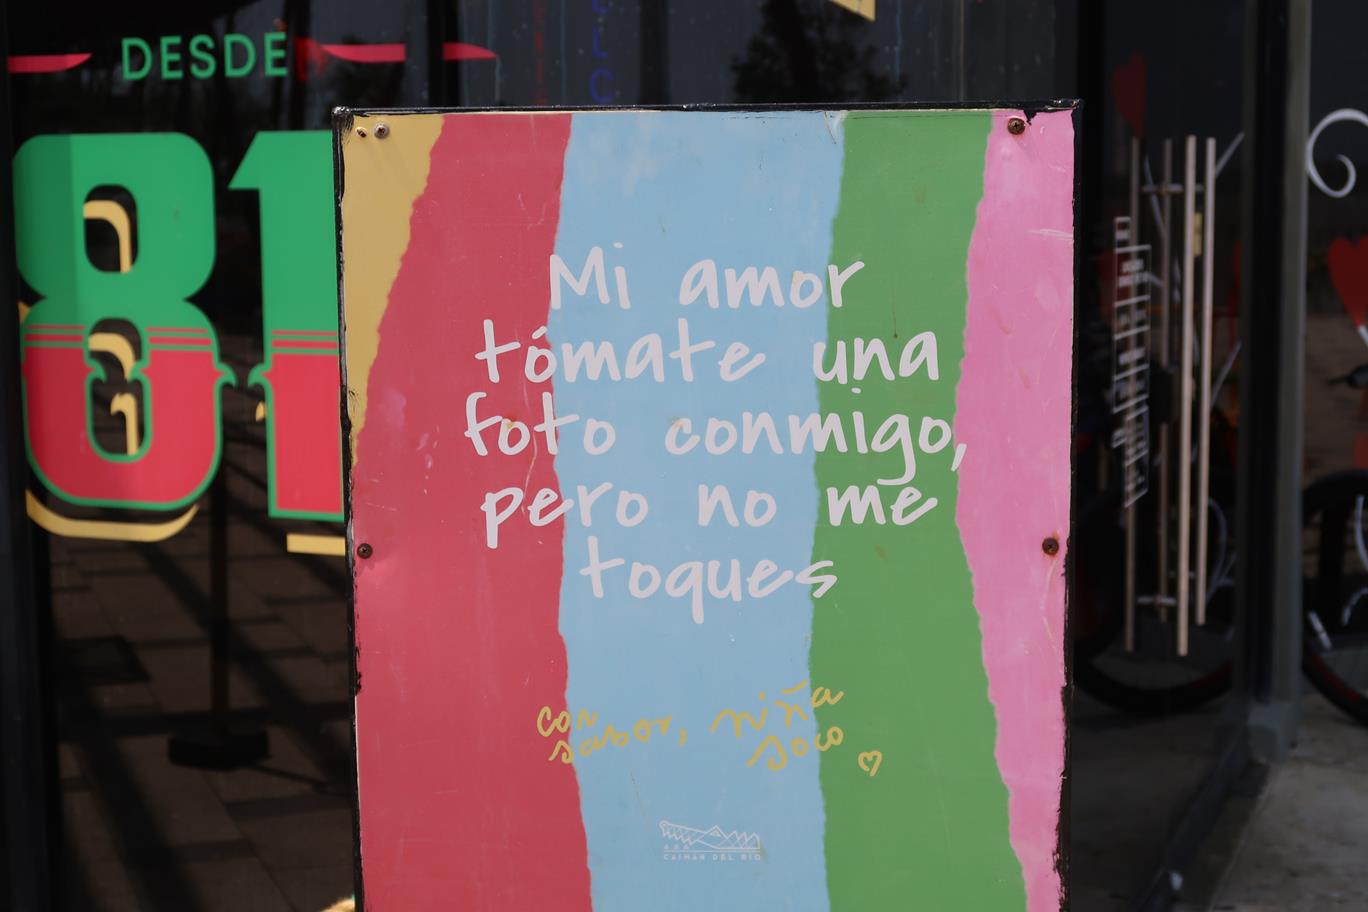 DESDE
81
Mi amor
tómate una
foto conmigo,
pero no me
toques
con
sabor, niña
soco
CAIMÁN DEL RÍO